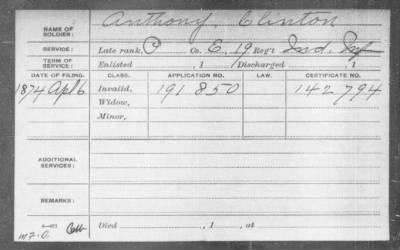 NAME OF SOLDIER: Anthony, Clinton
SERVICE: Late rank, P Co. E, 19 Reg't Ind. Inf
TERM OF SERVICE: Enlisted , 1 Discharged , 1
DATE OF FILING. CLASS. APPLICATION NO. LAW. CERTIFICATE NO.
1874 Apl 6 Invalid, 191 850 142 794
Widow,
Minor,
ADDITIONAL SERVICES:
REMARKS:
Died , 1 , at